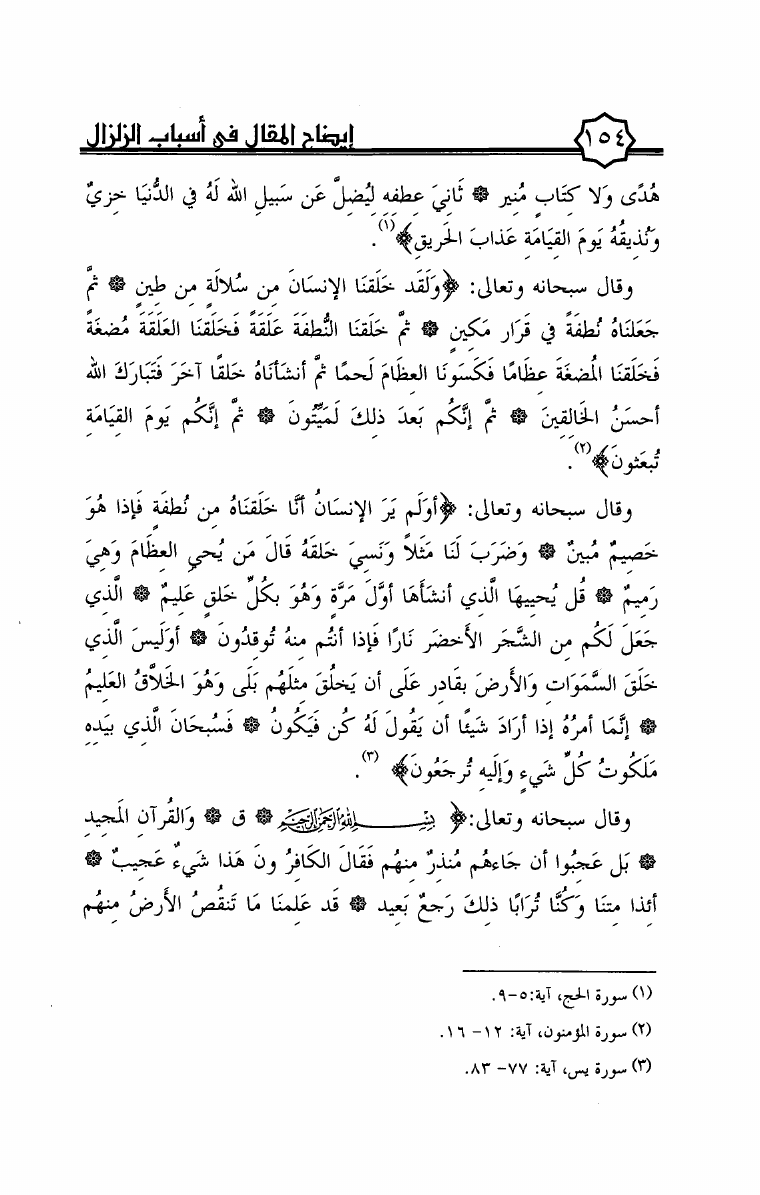 ١٥٤ إيضاح المقال في أسباب الزلزال
هُدًى وَلا كِتَابٍ مُنِيرٍ ۞ ثَانِيَ عِطفِهِ لِيُضِلَّ عَن سَبِيلِ الله لَهُ فِي الدُّنيَا خِزيٌ
وَنُذِيقُهُ يَومَ القِيَامَةِ عَذابَ الحَرِيقِ﴾(١).
وقال سبحانه وتعالى: ﴿وَلَقَد خَلَقنَا الإنسَانَ مِن سُلالَةٍ مِن طِينٍ ۞ ثمَّ
جَعَلنَاهُ نُطفَةً فِي قَرَارٍ مَكِينٍ ۞ ثمَّ خَلَقنَا النُّطفَةَ عَلَقَةً فَخَلَقنَا العَلَقَةَ مُضغَةً
فَخَلَقنَا المُضغَةَ عِظَامًا فَكَسَونَا العِظَامَ لَحمًا ثمَّ أنشَأنَاهُ خَلقًا آخَرَ فَتَبَارَكَ الله
أحسَنُ الخَالِقِينَ ۞ ثمَّ إنَّكُم بَعدَ ذلِكَ لَمَيِّتُونَ ۞ ثمَّ إنَّكُم يَومَ القِيَامَةِ
تُبعَثونَ﴾(٢).
وقال سبحانه وتعالى: ﴿أوَلَم يَرَ الإنسَانُ أنَّا خَلَقنَاهُ مِن نُطفَةٍ فَإذا هُوَ
خَصِيمٌ مُبِينٌ ۞ وَضَرَبَ لَنَا مَثَلاً وَنَسِيَ خَلقَهُ قَالَ مَن يُحيِ العِظَامَ وَهِيَ
رَمِيمٌ ۞ قُل يُحيِيهَا الَّذي أنشَأهَا أوَّلَ مَرَّةٍ وَهُوَ بِكُلِّ خَلقٍ عَلِيمٌ ۞ الَّذي
جَعَلَ لَكُم مِن الشَّجَرِ الأخضَرِ نَارًا فَإذا أنتُم مِنهُ تُوقِدُونَ ۞ أوَلَيسَ الَّذي
خَلَقَ السَّمَوَاتِ وَالأرضَ بِقَادِرٍ عَلَى أن يَخلُقَ مِثلَهُم بَلَى وَهُوَ الخَلاَّقُ العَلِيمُ
۞ إنَّمَا أمرُهُ إذا أرَادَ شَيئًا أن يَقُولَ لَهُ كُن فَيَكُونُ ۞ فَسُبحَانَ الَّذي بِيَدِهِ
مَلَكُوتُ كُلِّ شَيءٍ وَإلَيهِ تُرجَعُونَ﴾ (٣).
وقال سبحانه وتعالى:﴿ بسم الله الرحمن الرحيم ۞ ق ۞ وَالقُرآنِ المَجِيدِ
۞ بَل عَجِبُوا أن جَاءهُم مُنذِرٌ مِنهُم فَقَالَ الكَافِرُونَ هَذا شَيءٌ عَجِيبٌ ۞
أئِذا مِتنَا وَكُنَّا تُرَابًا ذلِكَ رَجعٌ بَعِيد ۞ قَد عَلِمنَا مَا تَنقُصُ الأرضُ مِنهُم
(١) سورة الحج، آية:٥-٩.
(٢) سورة المؤمنون، آية: ١٢- ١٦.
(٣) سورة يس، آية: ٧٧- ٨٣.